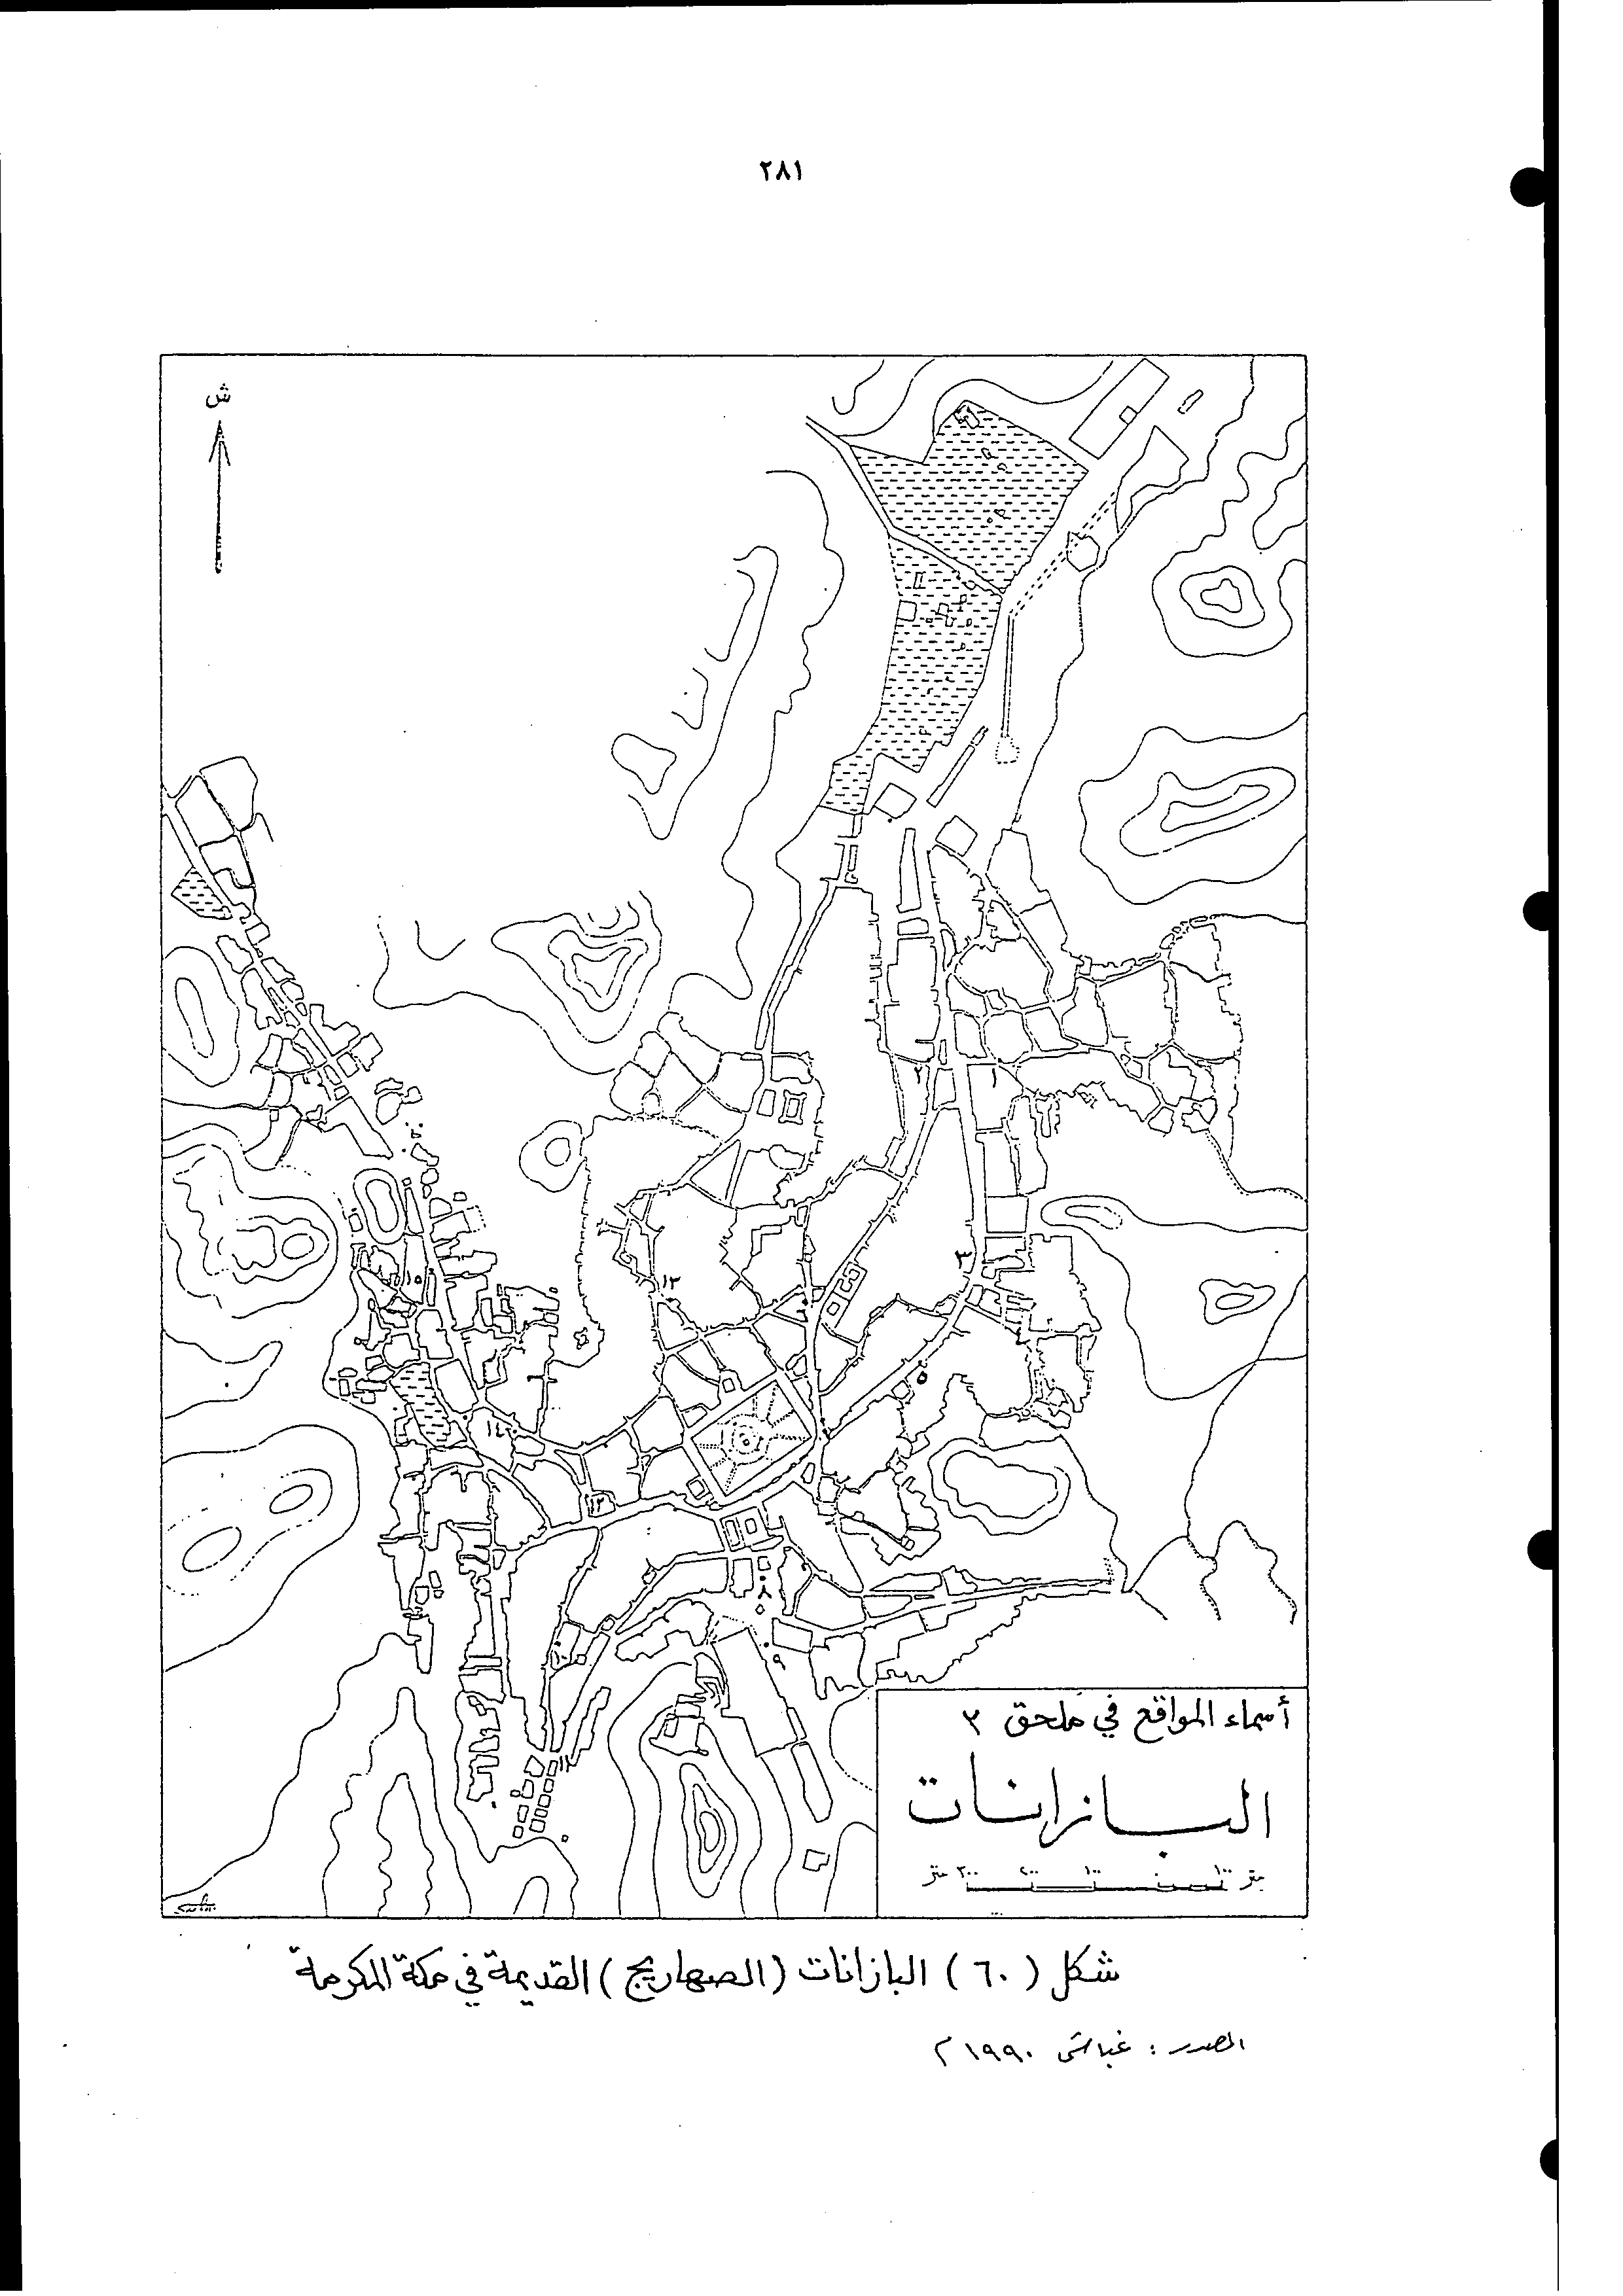 ٢٨١
ش
٢
١
٣
١٣
١٥
٥
١٤
١٢
٨
٩
١٠
١١
أسماء المواقع في ملحق ٣
البازانات
متر ١٠٠ ١٠٠ ٢٠٠ ٣٠٠ متر
شكل ( ٦٠ ) البازانات ( الصهاريج ) القديمة في مكة المكرمة
المصدر : غباشي ١٩٩٠ م